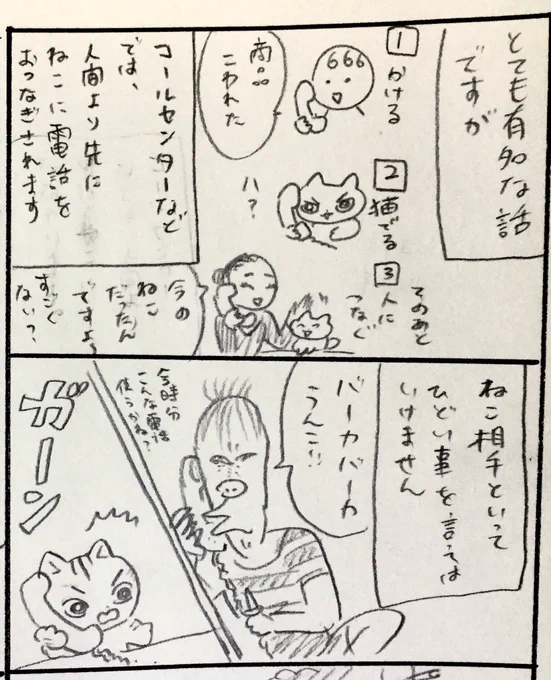 とても有名な話
ですが
1
かける
666
商品
こわれた
2
猫でる
ハ?
3
そのあと
人に
つなぐ
コールセンターなど
では、
人間より先に
ねこに電話を
おつなぎされます
今の
ねこ
だったん
ですよ〜
すごく
ない?
ねこ相手といって
ひどい事を言っては
いけません
バーカバーカ
うんこ!!
今時分
こんな電話
使うかね?
ガーン